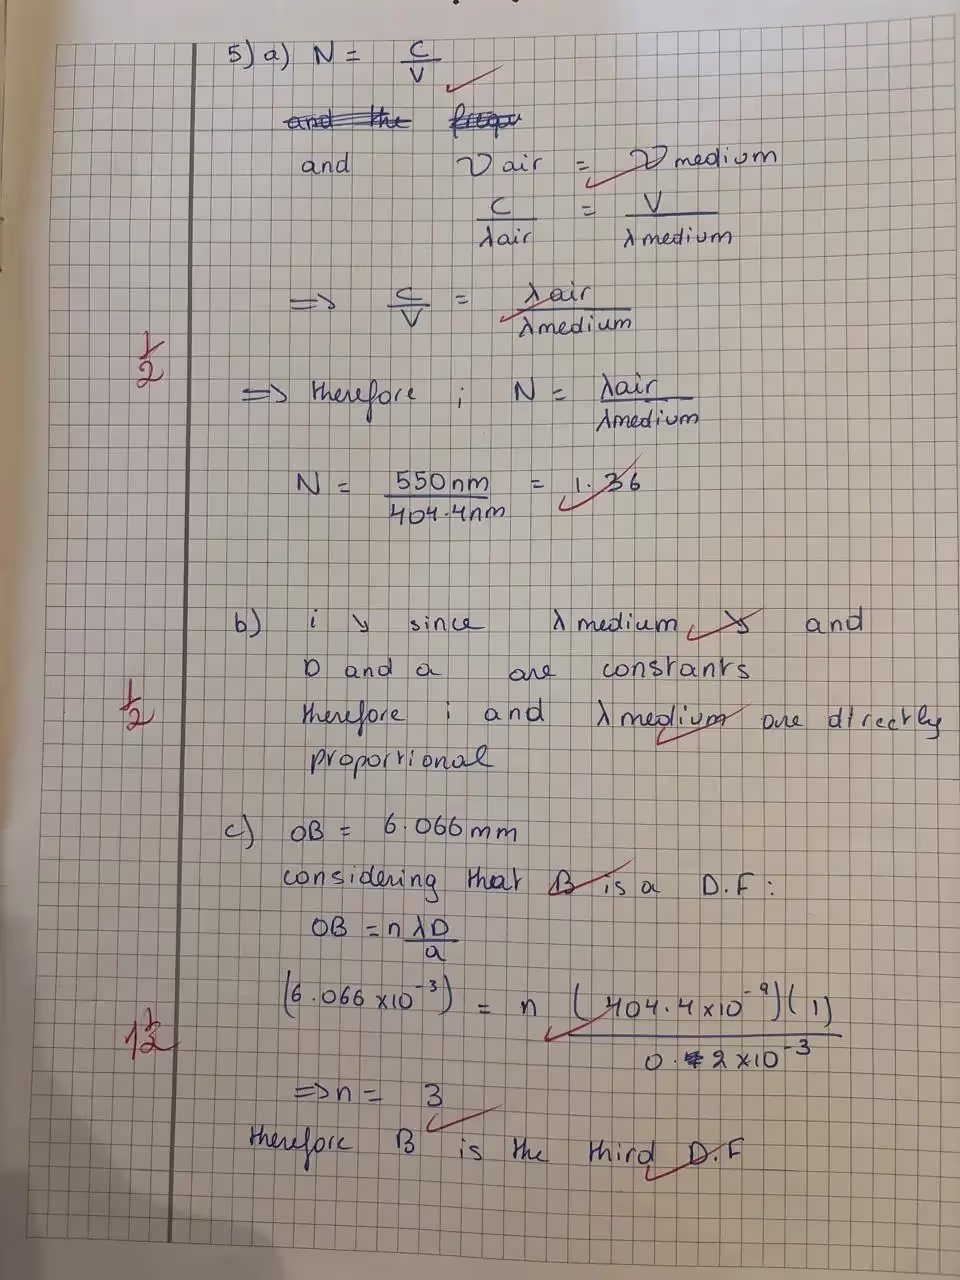 5) a) N = C/V
and the frequ
and ν air = ν medium
C/λair = V/λmedium
=> C/V = λair/λmedium
1/2
=> therefore ; N = λair/λmedium
N = 550nm/404.4nm = 1.36
b) i ↘ since λ medium ↘ and
D and a are constants
1/2
therefore i and λ medium are directly
proportional
c) OB = 6.066mm
considering that B is a D.F:
OB = n λD/a
(6.066 x10^-3) = n (404.4x10^-9)(1)/0.2x10^-3
1 1/2
=> n = 3
therefore B is the third D.F